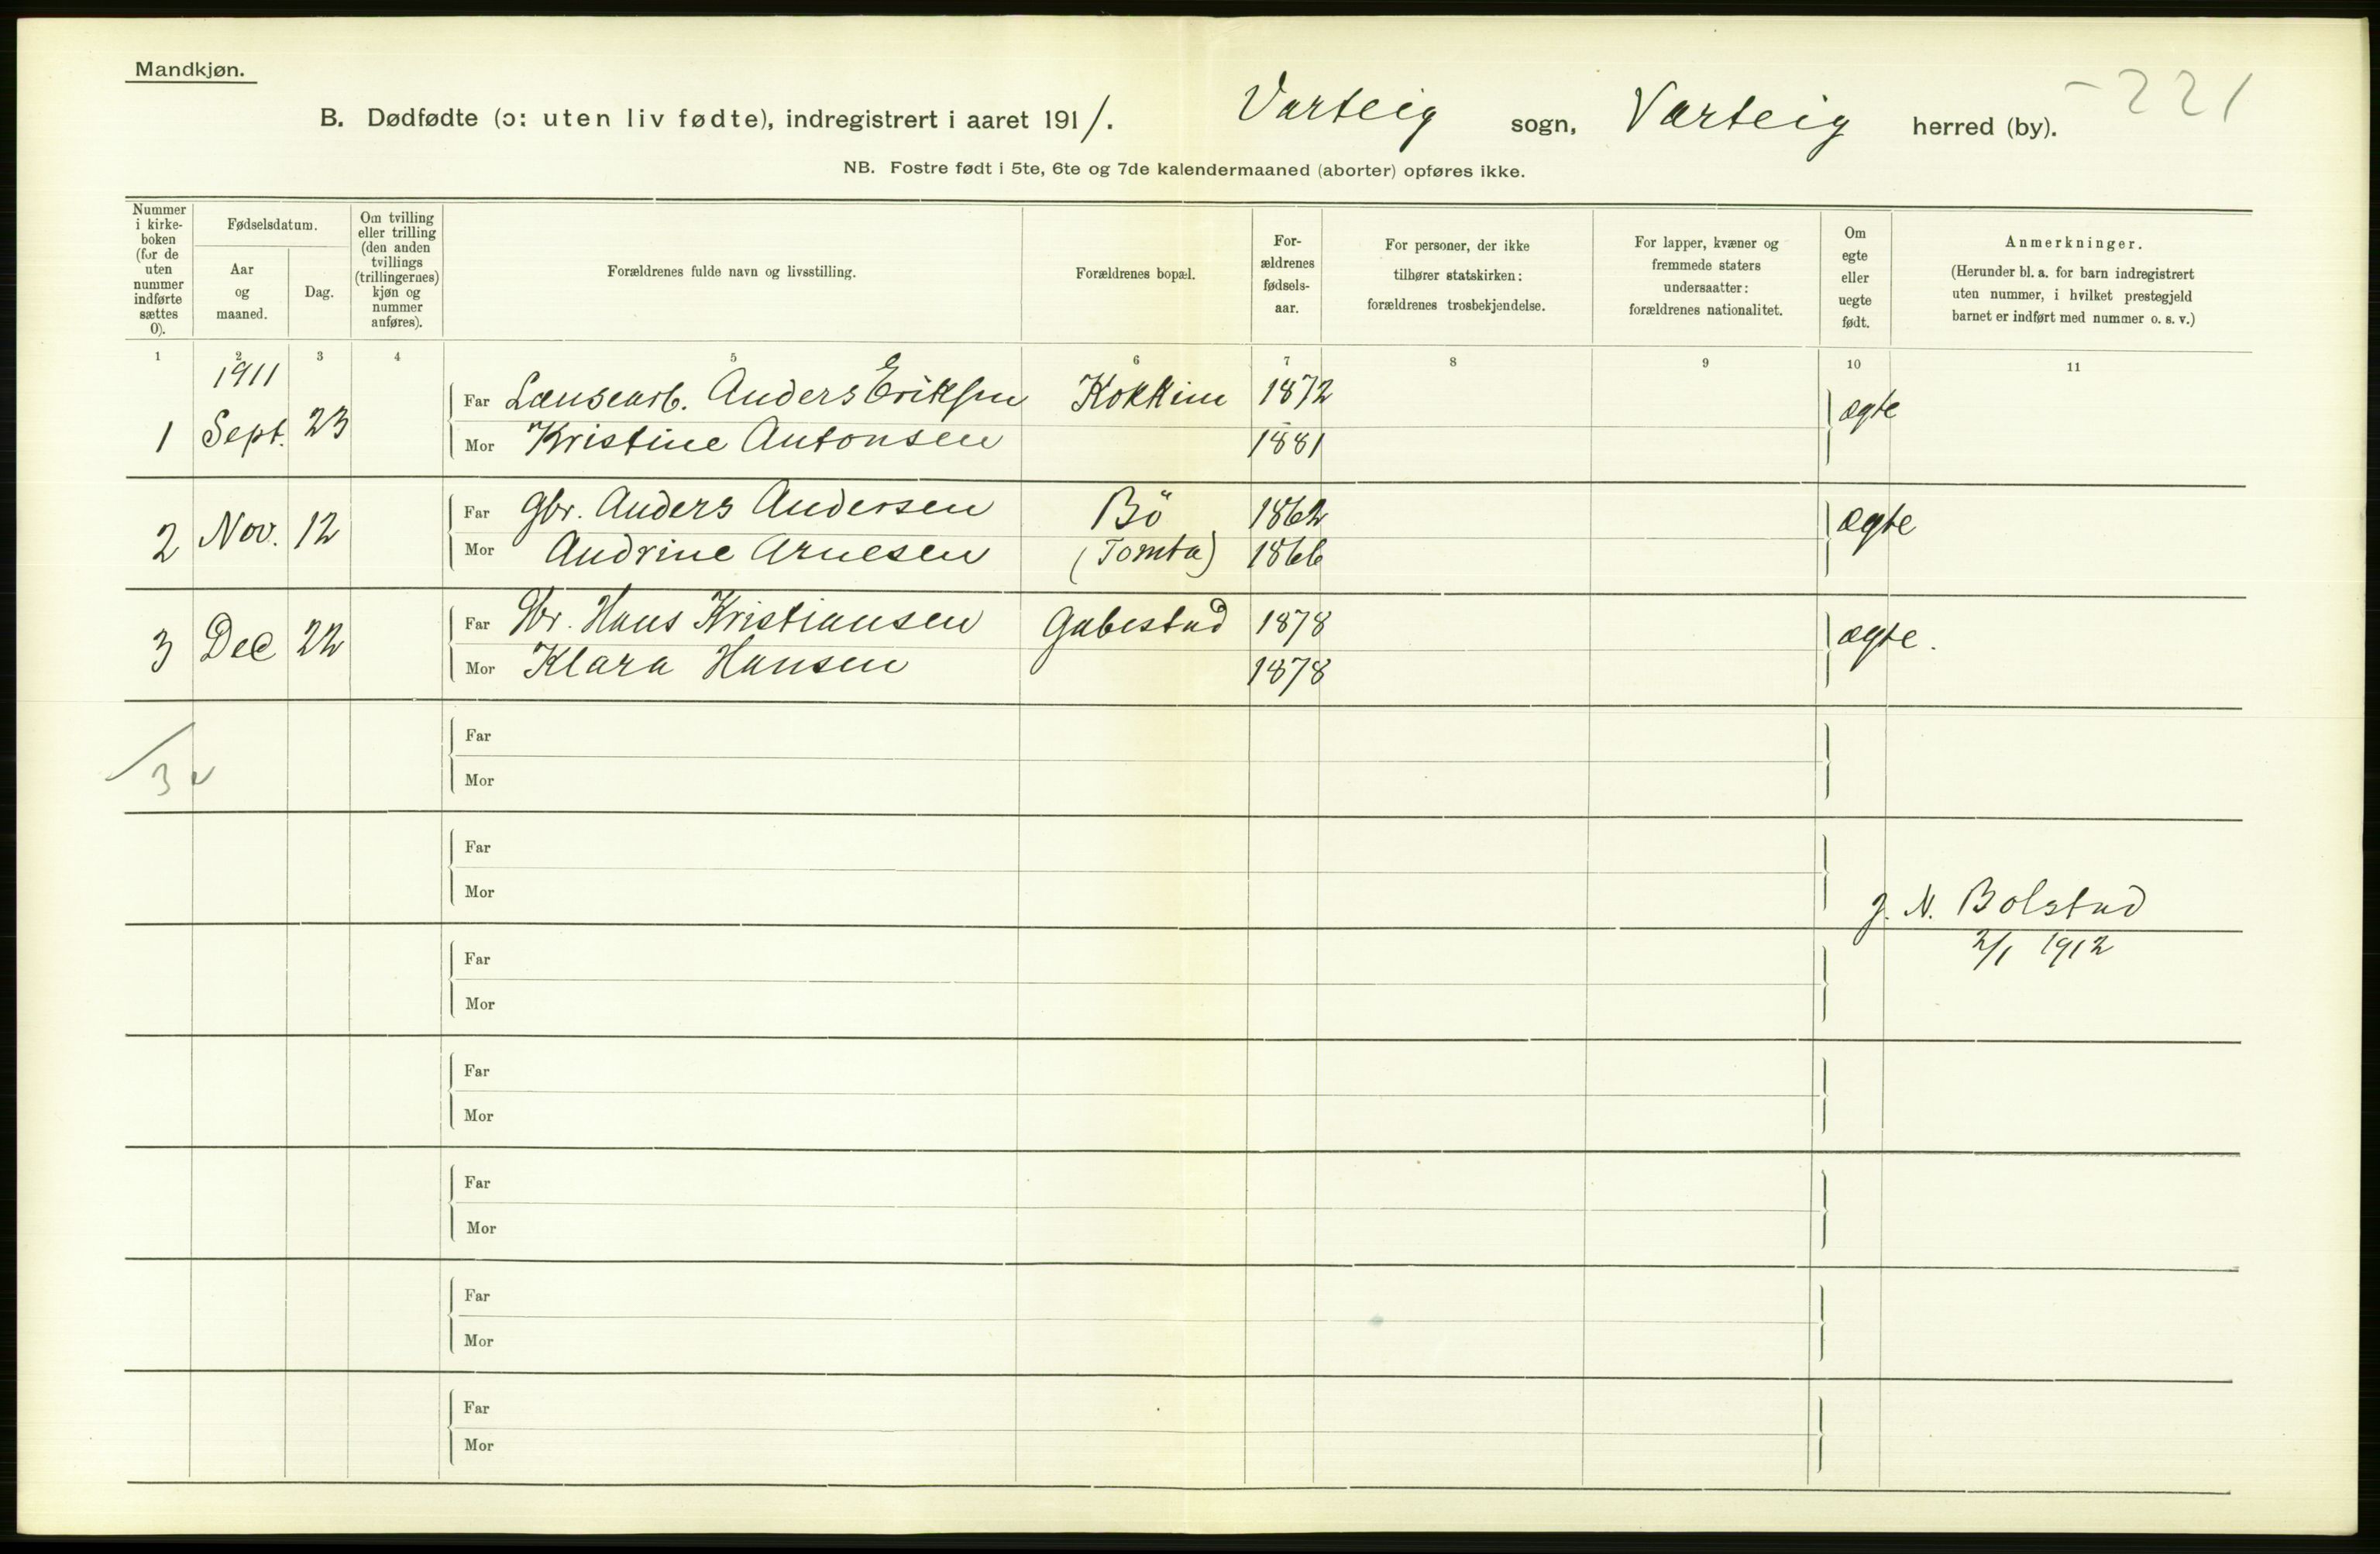 Mandkjøn.
-221
B. Dødfødte (ɔ: uten liv fødte), indregistrert i aaret 1911. Varteig sogn, Varteig herred (by).
NB. Fostre født i 5te, 6te og 7de kalendermaaned (aborter) opføres ikke.
Nummer i kirke- boken (for de uten nummer indførte sættes 0).
Fødselsdatum.
Aar og maaned.
Dag.
Om tvilling eller trilling (den anden tvillings (trillingernes) kjøn og nummer anføres).
Forældrenes fulde navn og livsstilling.
Forældrenes bopæl.
For- ældrenes fødsels- aar.
For personer, der ikke tilhører statskirken: forældrenes trosbekjendelse.
For lapper, kvæner og fremmede staters undersaatter: forældrenes nationalitet.
Om egte eller uegte født.
Anmerkninger.
(Herunder bl. a. for barn indregistrert uten nummer, i hvilket prestegjeld barnet er indført med nummer o. s. v.)
1 2 3 4 5 6 7 8 9 10 11
1911
1 Sept. 23 Far Lænsearb. Anders Eriksen Kokkim 1872 ægte
Mor Kristine Antonsen 1881
2 Nov. 12 Far Gbr. Anders Andersen Bö 1862 ægte
Mor Andrine Arnesen (Tomta) 1866
3 Dec 22 Far Gbr. Hans Kristiansen Gabestad 1878 ægte.
Mor Klara Hansen 1878
Far
3
Mor
Far
Mor
J. N. Bolstad
Far
2/1 1912
Mor
Far
Mor
Far
Mor
Far
Mor
Far
Mor